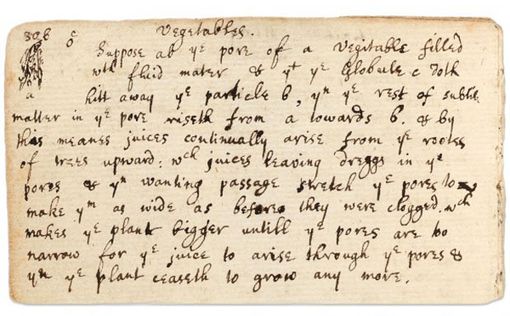 Vegetables.
Suppose ab yᵉ pore of a Vegitable filled
wᵗʰ fluid mater & yᵗ yᵉ Globule c doth
a hitt away yᵉ particle b, yⁿ yᵉ rest of subtile
matter in yᵉ pore riseth from a towards b. & by
this meanes juices continually arise from yᵉ rootes
of trees upward: wᶜʰ juices leaving dreggs in yᵉ
pores & yⁿ wanting passage stretch yᵉ pores to
make yᵐ as wide as before they were clogged. wᶜʰ
makes yᵉ plant bigger untill yᵉ pores are too
narrow for yᵉ juice to arise through yᵉ pores &
yⁿ yᵉ plant ceaseth to grow any more.